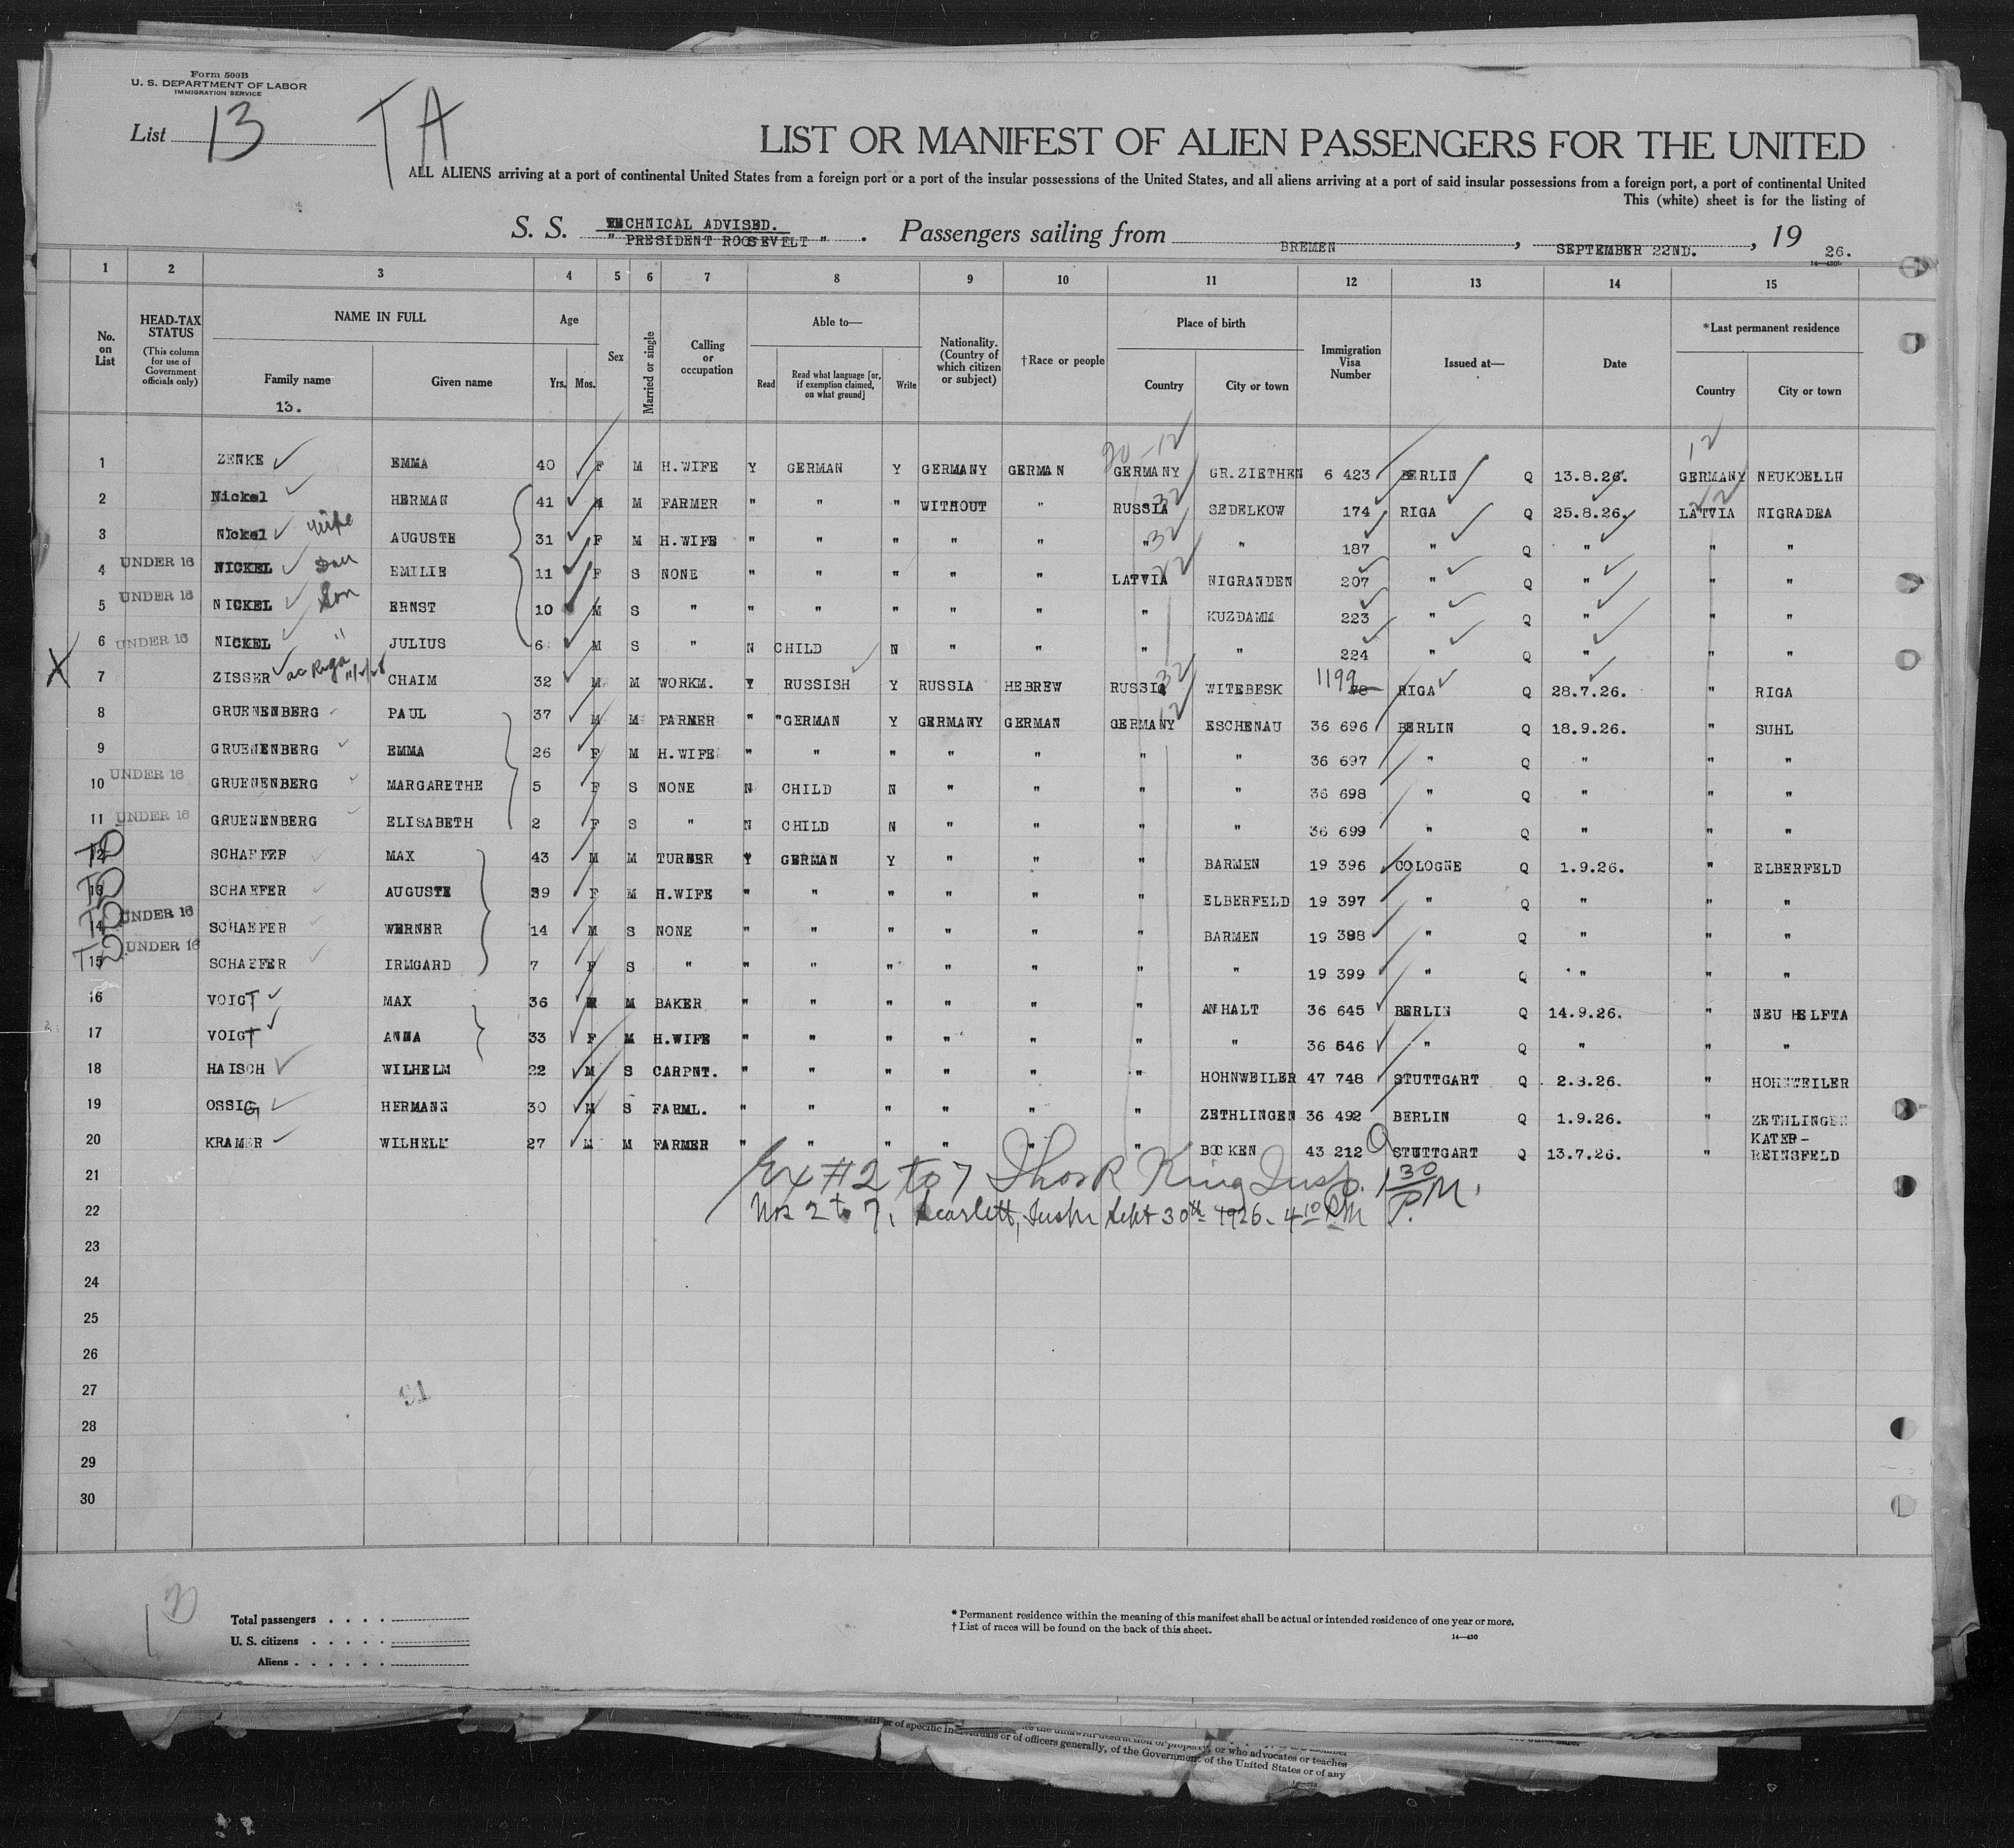 Form 500B
U. S. DEPARTMENT OF LABOR
IMMIGRATION SERVICE
List 13 TA
LIST OR MANIFEST OF ALIEN PASSENGERS FOR THE UNITED
ALL ALIENS arriving at a port of continental United States from a foreign port or a port of the insular possessions of the United States, and all aliens arriving at a port of said insular possessions from a foreign port, a port of continental United
This (white) sheet is for the listing of
TECHNICAL ADVISED.
S. S. " PRESIDENT ROOSEVELT " . Passengers sailing from BREMEN , SEPTEMBER 22ND. , 19 26.
1 2 3 4 5 6 7 8 9 10 11 12 13 14 15
No. on List
HEAD-TAX STATUS (This column for use of Government officials only)
NAME IN FULL Family name Given name
Age Yrs. Mos.
Sex
Married or single
Calling or occupation
Able to— Read Read what language [or, if exemption claimed, on what ground] Write
Nationality. (Country of which citizen or subject)
†Race or people
Place of birth Country City or town
Immigration Visa Number
Issued at—
Date
*Last permanent residence Country City or town
13.
20-12 12
1 ZENKE EMMA 40 F M H.WIFE Y GERMAN Y GERMANY GERMAN GERMANY GR.ZIETHEN 6 423 BERLIN Q 13.8.26. GERMANY NEUKOELLN
2 Nickel HERMAN 41 M M FARMER " " " WITHOUT " RUSSIA 32 SEDELKOW 174 RIGA Q 25.8.26. LATVIA 22 NIGRADEA
3 Nickel wife AUGUSTE 31 F M H.WIFE " " " " " " 32 " 187 " Q " " "
4 UNDER 16 NICKEL EMILIE 11 F S NONE " " " " " LATVIA 22 NIGRANDEN 207 " Q " " "
5 UNDER 16 NICKEL Son ERNST 10 M S " " " " " " " KUZDAMM 223 " Q " " "
6 UNDER 16 NICKEL " JULIUS 6 M S " N CHILD N " " " " 224 " Q " " "
X 7 ZISSER ac Riga CHAIM 32 M M WORKM. Y RUSSISH Y RUSSIA HEBREW RUSSIA 32 WITEBESK 1199 78 RIGA Q 28.7.26. " RIGA
8 GRUENENBERG PAUL 37 M M FARMER " "GERMAN Y GERMANY GERMAN GERMANY 12 ESCHENAU 36 696 BERLIN Q 18.9.26. " SUHL
9 GRUENENBERG EMMA 26 F M H.WIFE " " " " " " " 36 697 " Q " " "
10 UNDER 16 GRUENENBERG MARGARETHE 5 F S NONE N CHILD N " " " " 36 698 " Q " " "
11 UNDER 16 GRUENENBERG ELISABETH 2 F S " N CHILD N " " " " 36 699 " Q " " "
12 TD SCHAEFER MAX 43 M M TURNER Y GERMAN Y " " " BARMEN 19 396 COLOGNE Q 1.9.26. " ELBERFELD
13 TD SCHAEFER AUGUSTE 39 F M H.WIFE " " " " " " ELBERFELD 19 397 " Q " " "
14 TD UNDER 16 SCHAEFER WERNER 14 M S NONE " " " " " " BARMEN 19 398 " Q " " "
15 TD UNDER 16 SCHAEFER IRMGARD 7 F S " " " " " " " " 19 399 " Q " " "
16 VOIGT MAX 36 M M BAKER " " " " " " ANHALT 36 645 BERLIN Q 14.9.26. " NEU HELFTA
17 VOIGT ANNA 33 F M H.WIFE " " " " " " " 36 646 " Q " " "
18 HAISCH WILHELM 22 M S CARPNT. " " " " " " HOHNWEILER 47 748 STUTTGART Q 2.8.26. " HOHNWEILER
19 OSSIG HERMANN 30 M S FARML. " " " " " " ZETHLINGEN 36 492 BERLIN Q 1.9.26. " ZETHLINGEN
20 KRAMER WILHELM 27 M M FARMER " " " " " " BOCKEN 43 212 Q STUTTGART Q 13.7.26. " KATER-
REINSFELD
21 Ex #2 to 7 King Insp. 1 30 P.M.
22 Nos 2 to 7, Scarlett, Inspr Sept 30th 1926. 4 10 P.M
23
24
25
26
27
31
28
29
30
Total passengers . . . .
U. S. citizens . . . . .
Aliens . . . . . .
* Permanent residence within the meaning of this manifest shall be actual or intended residence of one year or more.
† List of races will be found on the back of this sheet.
14—430
or who advocates or teaches
individuals or of officers generally, of the Government of the United States or of any